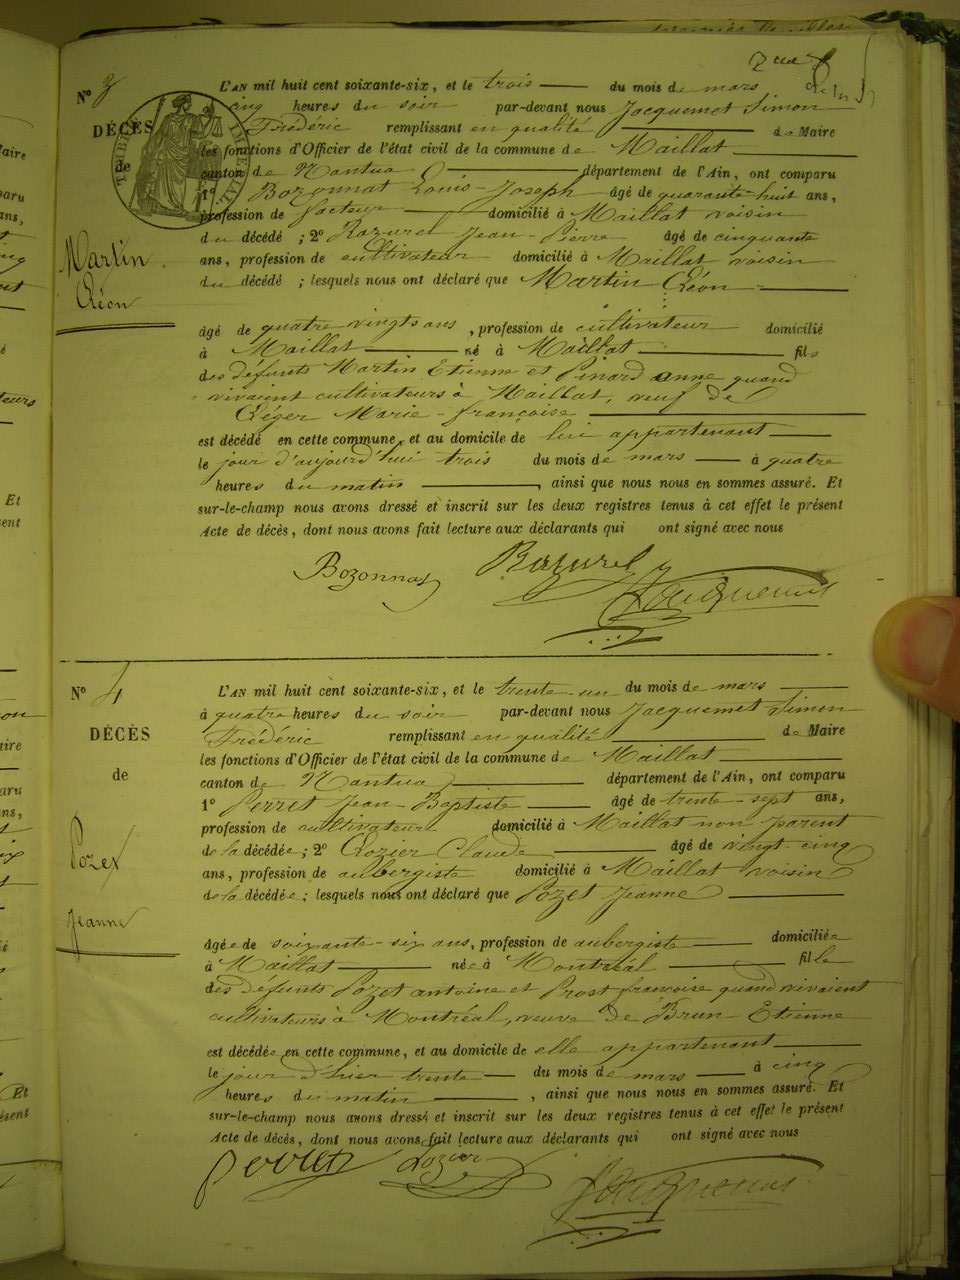 N° 3
L'AN mil huit cent soixante-six, et le trois du mois de mars
cinq heures du soir par-devant nous Jacquemet Simon
DÉCÈS Frédéric remplissant en qualité de Maire
les fonctions d'Officier de l'état civil de la commune de Maillat
de canton de Nantua département de l'Ain, ont comparu
1° Bozonnat Louis-Joseph âgé de quarante-huit ans,
profession de facteur domicilié à Maillat voisin
du décédé ; 2° Razurel Jean-Pierre âgé de cinquante
Martin ans, profession de cultivateur domicilié à Maillat voisin
du décédé ; lesquels nous ont déclaré que Martin Léon
Léon
âgé de quatre vingts ans, profession de cultivateur domicilié
à Maillat né à Maillat fils
des défunts Martin Etienne et Pinard anne quand
vivaient cultivateurs à Maillat, veuf de
Léger Marie-françoise
est décédé en cette commune, et au domicile de lui appartenant
le jour d'aujourd'hui trois du mois de mars à quatre
heures du matin, ainsi que nous nous en sommes assuré. Et
sur-le-champ nous avons dressé et inscrit sur les deux registres tenus à cet effet le présent
Acte de décès, dont nous avons fait lecture aux déclarants qui ont signé avec nous
Bozonnat Razurel Jacquemet
N° 4
L'AN mil huit cent soixante-six, et le trente-un du mois de mars
à quatre heures du soir par-devant nous Jacquemet Simon
DÉCÈS Frédéric remplissant en qualité de Maire
les fonctions d'Officier de l'état civil de la commune de Maillat
de canton de Nantua département de l'Ain, ont comparu
1° Perret Jean-Baptiste âgé de trente-sept ans,
profession de cultivateur domicilié à Maillat non parent
Pozet de la décédée; 2° Lozier Claude âgé de vingt-cinq
ans, profession de aubergiste domicilié à Maillat voisin
de la décédée; lesquels nous ont déclaré que Pozet Jeanne
Jeanne
âgée de soixante-six ans, profession de aubergiste domiciliée
à Maillat née à Montréal fille
des défunts Pozet antoine et Prost françoise quand vivaient
cultivateurs à Montréal, veuve de Brun-Étienne
est décédée en cette commune, et au domicile de elle appartenant
le jour d'hier trente du mois de mars à cinq
heures du matin, ainsi que nous nous en sommes assuré. Et
sur-le-champ nous avons dressé et inscrit sur les deux registres tenus à cet effet le présent
Acte de décès, dont nous avons fait lecture aux déclarants qui ont signé avec nous
Perret Lozier Jacquemet